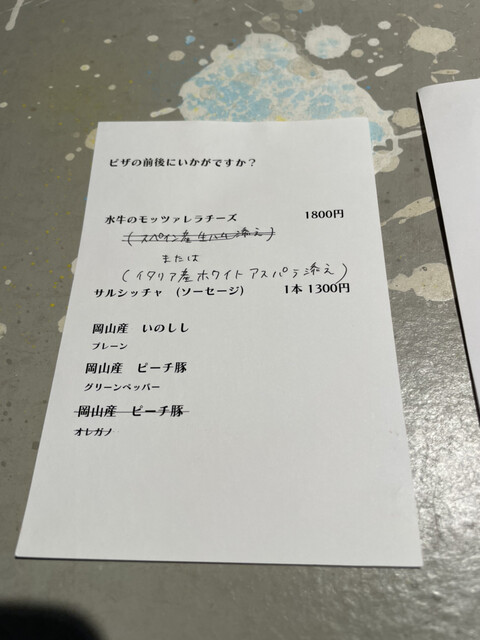 ピザの前後にいかがですか？
水牛のモッツァレラチーズ 1800円
(スペイン産生ハム添え)
または
(イタリア産ホワイトアスパラ添え)
サルシッチャ (ソーセージ) 1本 1300円
岡山産 いのしし
プレーン
岡山産 ピーチ豚
グリーンペッパー
岡山産 ピーチ豚
オレガノ